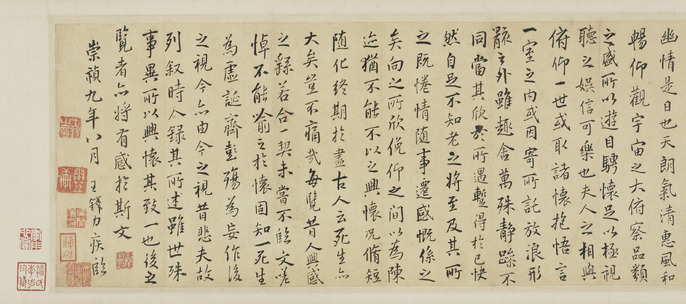 幽情是日也天朗氣清惠風和
暢仰觀宇宙之大俯察品類
之盛所以遊目騁懷足以極視
聽之娛信可樂也夫人之相與
俯仰一世或取諸懷抱悟言
一室之內或因寄所託放浪形
骸之外雖趣舍萬殊靜躁不
同當其欣於所遇蹔得於己快
然自足不知老之將至及其所
之既惓情隨事遷感慨係之
矣向之所欣俛仰之間以為陳
迹猶不能不以之興懷況脩短
隨化終期於盡古人云死生亦
大矣豈不痛哉每覽昔人興感
之繇若合一契未嘗不臨文嗟
悼不能喻之於懷固知一死生
為虛誕齊彭殤為妄作後
之視今亦由今之視昔悲夫故
列敘時人錄其所述雖世殊
事異所以興懷其致一也後之
覽者亦將有感於斯文
崇禎九年八月 王鐸力疾臨